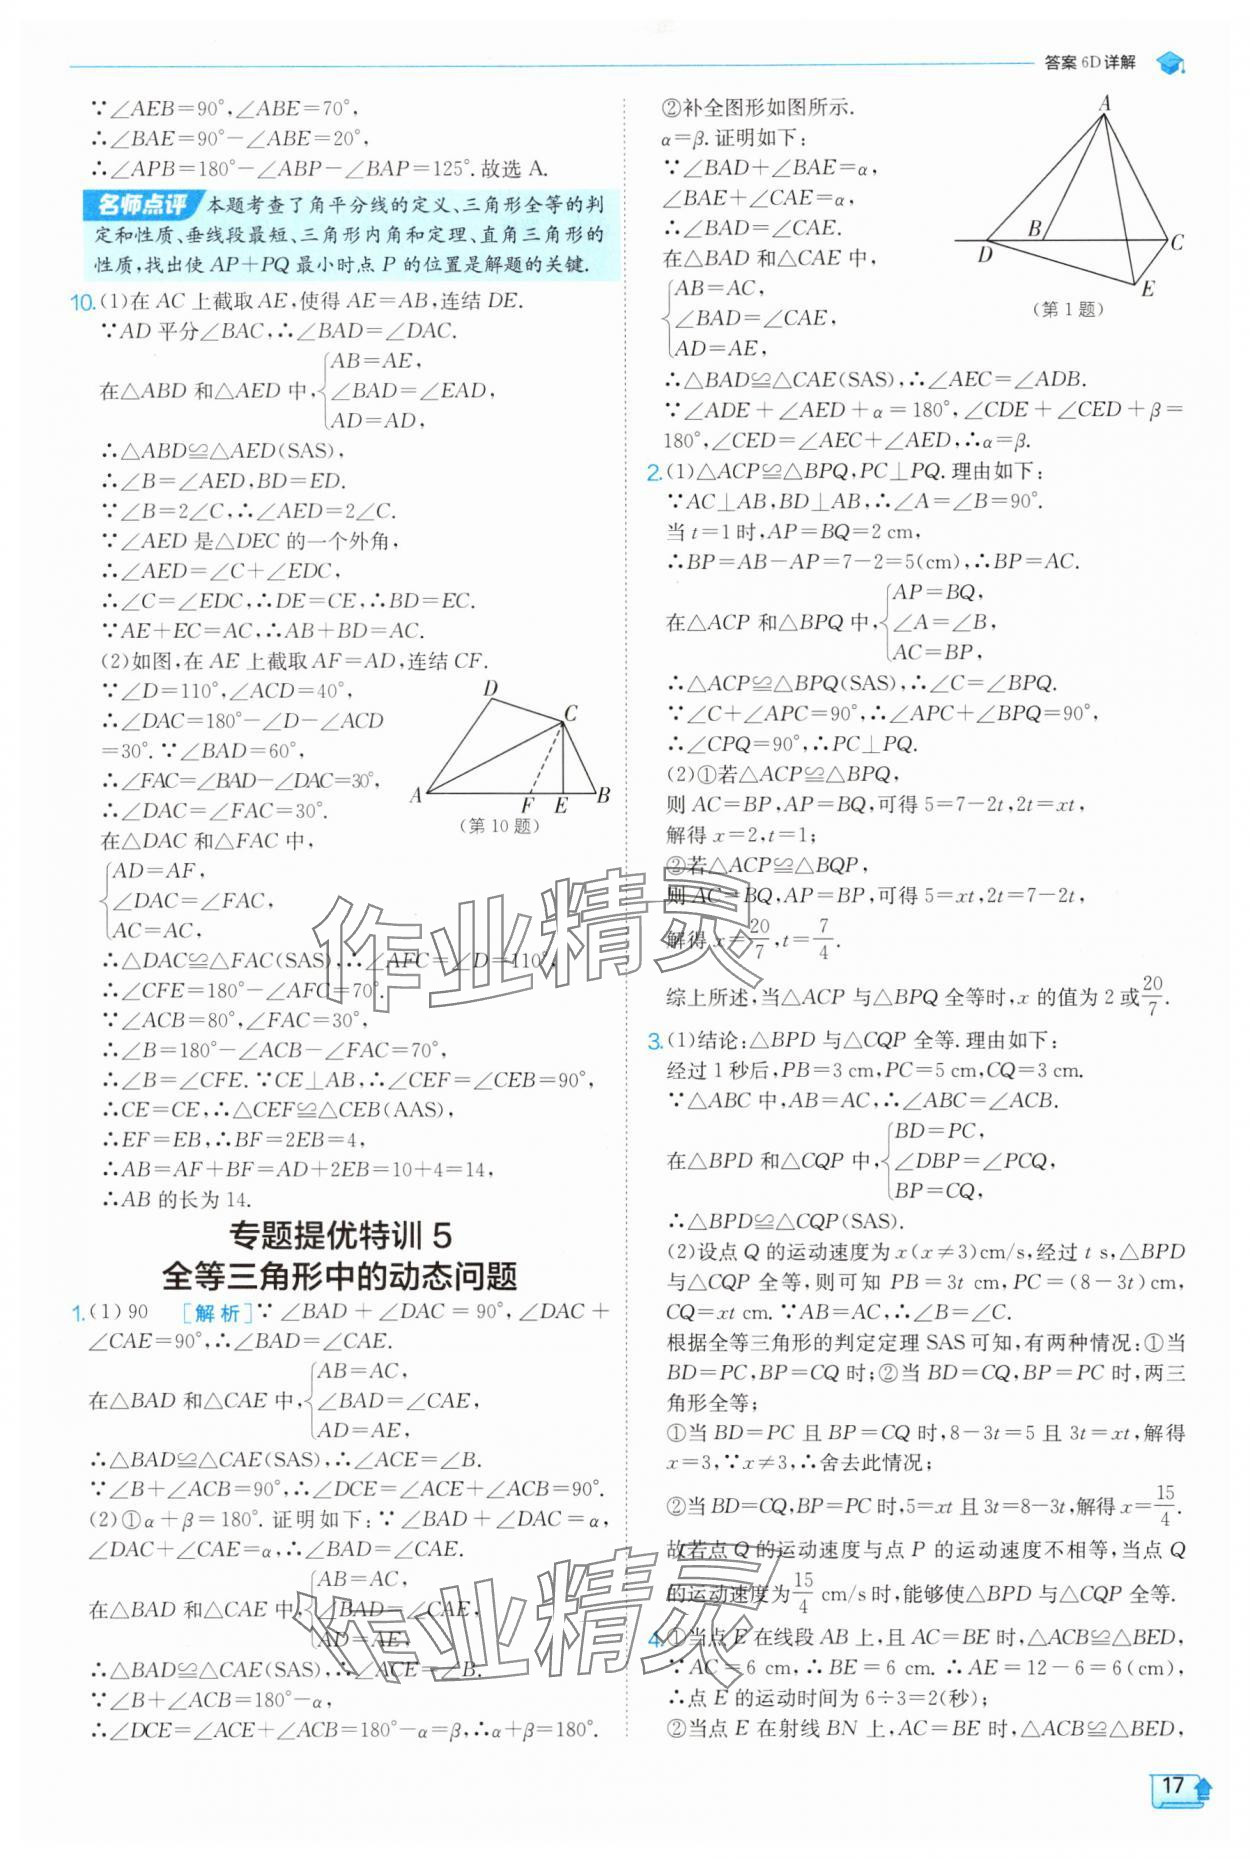 答案 6D 详解
∵∠AEB=90°,∠ABE=70°,
∴∠BAE=90°-∠ABE=20°,
∴∠APB=180°-∠ABP-∠BAP=125°.故选 A.
名师点评 本题考查了角平分线的定义、三角形全等的判
定和性质、垂线段最短、三角形内角和定理、直角三角形的
性质,找出使 AP+PQ 最小时点 P 的位置是解题的关键.
10.(1)在 AC 上截取 AE,使得 AE=AB,连结 DE.
∵AD 平分∠BAC,∴∠BAD=∠DAC.
在△ABD 和△AED 中,
AB=AE,
∠BAD=∠EAD,
AD=AD,
∴△ABD≌△AED(SAS),
∴∠B=∠AED,BD=ED.
∵∠B=2∠C,∴∠AED=2∠C.
∵∠AED 是△DEC 的一个外角,
∴∠AED=∠C+∠EDC,
∴∠C=∠EDC,∴DE=CE,∴BD=EC.
∵AE+EC=AC,∴AB+BD=AC.
(2)如图,在 AE 上截取 AF=AD,连结 CF.
∵∠D=110°,∠ACD=40°,
∴∠DAC=180°-∠D-∠ACD
=30°.∵∠BAD=60°,
∴∠FAC=∠BAD-∠DAC=30°,
∴∠DAC=∠FAC=30°.
在△DAC 和△FAC 中,
AD=AF,
∠DAC=∠FAC,
AC=AC,
D
C
A
F
E
B
(第 10 题)
∴△DAC≌△FAC(SAS),∴∠AFC=∠D=110°,
∴∠CFE=180°-∠AFC=70°.
∵∠ACB=80°,∠FAC=30°,
∴∠B=180°-∠ACB-∠FAC=70°,
∴∠B=∠CFE.∵CE⊥AB,∴∠CEF=∠CEB=90°,
∴CE=CE,∴△CEF≌△CEB(AAS),
∴EF=EB,∴BF=2EB=4,
∴AB=AF+BF=AD+2EB=10+4=14,
∴AB 的长为 14.
专题提优特训 5
全等三角形中的动态问题
1.(1)90 [解析]∵∠BAD+∠DAC=90°,∠DAC+
∠CAE=90°,∴∠BAD=∠CAE.
在△BAD 和△CAE 中,
AB=AC,
∠BAD=∠CAE,
AD=AE,
∴△BAD≌△CAE(SAS),∴∠ACE=∠B.
∵∠B+∠ACB=90°,∴∠DCE=∠ACE+∠ACB=90°.
(2)①α+β=180°.证明如下:∵∠BAD+∠DAC=α,
∠DAC+∠CAE=α,∴∠BAD=∠CAE.
在△BAD 和△CAE 中,
AB=AC,
∠BAD=∠CAE,
AD=AE,
∴△BAD≌△CAE(SAS),∴∠ACE=∠B.
∵∠B+∠ACB=180°-α,
∴∠DCE=∠ACE+∠ACB=180°-α=β,∴α+β=180°.
②补全图形如图所示.
α=β.证明如下:
∵∠BAD+∠BAE=α,
∠BAE+∠CAE=α,
∴∠BAD=∠CAE.
在△BAD 和△CAE 中,
AB=AC,
∠BAD=∠CAE,
AD=AE,
A
B
C
D
E
(第 1 题)
∴△BAD≌△CAE(SAS),∴∠AEC=∠ADB.
∵∠ADE+∠AED+α=180°,∠CDE+∠CED+β=
180°,∠CED=∠AEC+∠AED,∴α=β.
2.(1)△ACP≌△BPQ,PC⊥PQ.理由如下:
∵AC⊥AB,BD⊥AB,∴∠A=∠B=90°.
当 t=1 时,AP=BQ=2 cm,
∴BP=AB-AP=7-2=5(cm),∴BP=AC.
在△ACP 和△BPQ 中,
AP=BQ,
∠A=∠B,
AC=BP,
∴△ACP≌△BPQ(SAS),∴∠C=∠BPQ.
∵∠C+∠APC=90°,∴∠APC+∠BPQ=90°,
∴∠CPQ=90°,∴PC⊥PQ.
(2)①若△ACP≌△BPQ,
则 AC=BP,AP=BQ,可得 5=7-2t,2t=xt,
解得 x=2,t=1;
②若△ACP≌△BQP,
则 AC=BQ,AP=BP,可得 5=xt,2t=7-2t,
解得 x=20/7,t=7/4.
综上所述,当△ACP 与△BPQ 全等时,x 的值为 2 或20/7.
3.(1)结论:△BPD 与△CQP 全等.理由如下:
经过 1 秒后,PB=3 cm,PC=5 cm,CQ=3 cm.
∵△ABC 中,AB=AC,∴∠ABC=∠ACB.
在△BPD 和△CQP 中,
BD=PC,
∠DBP=∠PCQ,
BP=CQ,
∴△BPD≌△CQP(SAS).
(2)设点 Q 的运动速度为 x(x≠3)cm/s,经过 t s,△BPD
与△CQP 全等,则可知 PB=3t cm,PC=(8-3t)cm,
CQ=xt cm.∵AB=AC,∴∠B=∠C.
根据全等三角形的判定定理 SAS 可知,有两种情况:①当
BD=PC,BP=CQ 时;②当 BD=CQ,BP=PC 时,两三
角形全等;
①当 BD=PC 且 BP=CQ 时,8-3t=5 且 3t=xt,解得
x=3,∵x≠3,∴舍去此情况;
②当 BD=CQ,BP=PC 时,5=xt 且 3t=8-3t,解得 x=15/4.
故若点 Q 的运动速度与点 P 的运动速度不相等,当点 Q
的运动速度为15/4 cm/s 时,能够使△BPD 与△CQP 全等.
4.①当点 E 在线段 AB 上,且 AC=BE 时,△ACB≌△BED,
∵AC=6 cm,∴BE=6 cm.∴AE=12-6=6(cm),
∴点 E 的运动时间为 6÷3=2(秒);
②当点 E 在射线 BN 上,AC=BE 时,△ACB≌△BED,
作业精灵
作业精灵
17